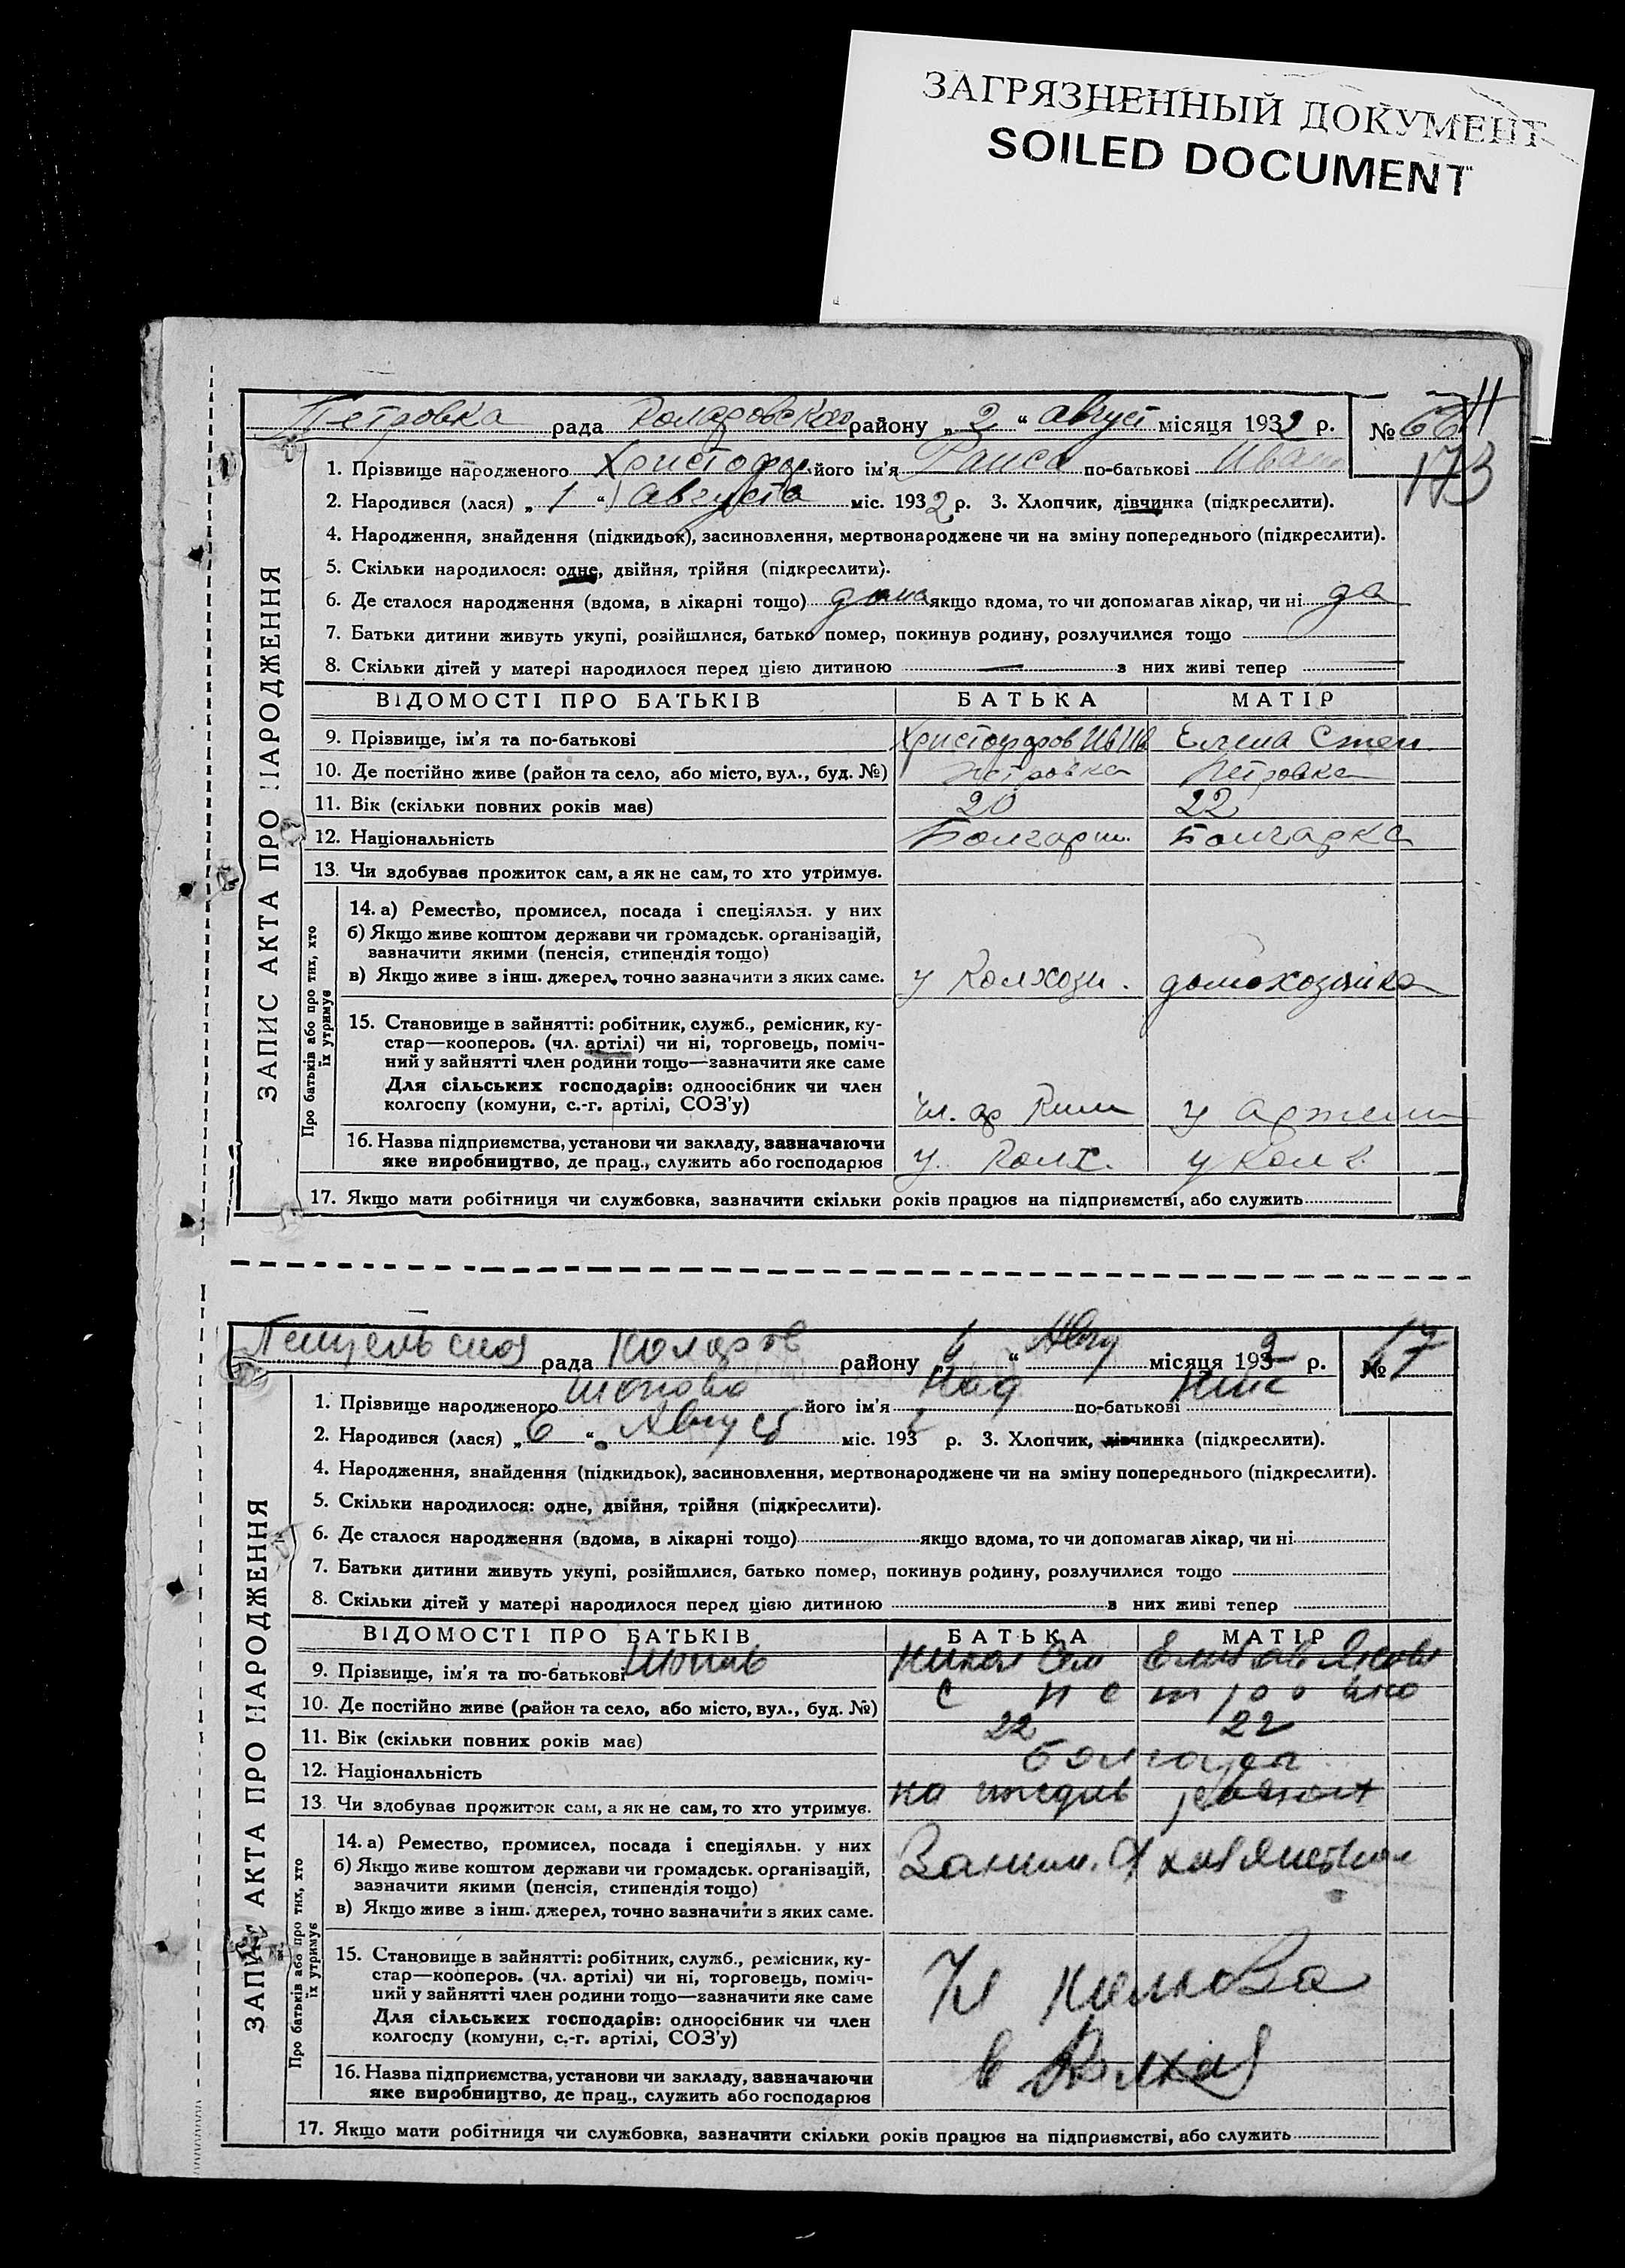 ЗАГРЯЗНЕННЫЙ ДОКУМЕНТ
SOILED DOCUMENT
Петровка рада Коларовская району „ 2 “ август місяця 1932 р. № 66
173
1. Прізвище народженого Христофор. його ім'я Раиса по-батькові Иван
2. Народився (лася) „ 1 “ Августа міс. 1932 р. 3. Хлопчик, дівчинка (підкреслити).
4. Народження, знайдення (підкидьок), засиновлення, мертвонароджене чи на зміну попереднього (підкреслити).
5. Скільки народилося: одне, двійня, трійня (підкреслити).
6. Де сталося народження (вдома, в лікарні тощо) дома якщо вдома, то чи допомагав лікар, чи ні да
7. Батьки дитини живуть укупі, розійшлися, батько помер, покинув родину, розлучилися тощо
8. Скільки дітей у матері народилося перед цією дитиною — з них живі тепер
ВІДОМОСТІ ПРО БАТЬКІВ БАТЬКА МАТІР
9. Прізвище, ім'я та по-батькові Христофоров Ив Ив Елена Степ
10. Де постійно живе (район та село, або місто, вул., буд. №) Петровка Петровка
11. Вік (скільки повних років має) 20 22
12. Національність Болгарин. Болгарка
13. Чи здобував прожиток сам, а як не сам, то хто утримує.
14. а) Ремество, промисел, посада і спеціяльн. у них
б) Якщо живе коштом держави чи громадськ. організацій,
зазначити якими (пенсія, стипендія тощо)
в) Якщо живе з інш. джерел, точно зазначити з яких саме. у Колхози. домохозяйка
15. Становище в зайнятті: робітник, служб., ремісник, ку-
стар—кооперов. (чл. артілі) чи ні, торговець, поміч-
ний у зайнятті член родини тощо—зазначити яке саме
Для сільських господарів: одноосібник чи член
колгоспу (комуни, с.-г. артілі, СОЗ'у) чл. у
16. Назва підприємства, установи чи закладу, зазначаючи
яке виробництво, де прац., служить або господарює у Колх. у Колх.
17. Якщо мати робітниця чи службовка, зазначити скільки років працює на підприємстві, або служить
ЗАПИС АКТА ПРО НАРОДЖЕННЯ
Про батьків або про тих, хто
їх утримує
рада Коларов району „ 6 “ Авгу місяця 1932 р. № 67
1. Прізвище народженого Шопова його ім'я Над по-батькові Ник
2. Народився (лася) „ 6 “ Август міс. 1932 р. 3. Хлопчик, дівчинка (підкреслити).
4. Народження, знайдення (підкидьок), засиновлення, мертвонароджене чи на зміну попереднього (підкреслити).
5. Скільки народилося: одне, двійня, трійня (підкреслити).
6. Де сталося народження (вдома, в лікарні тощо) якщо вдома, то чи допомагав лікар, чи ні
7. Батьки дитини живуть укупі, розійшлися, батько помер, покинув родину, розлучилися тощо
8. Скільки дітей у матері народилося перед цією дитиною з них живі тепер
ВІДОМОСТІ ПРО БАТЬКІВ БАТЬКА МАТІР
9. Прізвище, ім'я та по-батькові Шопов Никол Сем Елисав Яковл
10. Де постійно живе (район та село, або місто, вул., буд. №) с Петровка
11. Вік (скільки повних років має) 22 22
12. Національність Болгары
13. Чи здобував прожиток сам, а як не сам, то хто утримує. на
14. а) Ремество, промисел, посада і спеціяльн. у них
б) Якщо живе коштом держави чи громадськ. організацій,
зазначити якими (пенсія, стипендія тощо)
в) Якщо живе з інш. джерел, точно зазначити з яких саме.
15. Становище в зайнятті: робітник, служб., ремісник, ку-
стар—кооперов. (чл. артілі) чи ні, торговець, поміч-
ний у зайнятті член родини тощо—зазначити яке саме
Для сільських господарів: одноосібник чи член
колгоспу (комуни, с.-г. артілі, СОЗ'у)
16. Назва підприємства, установи чи закладу, зазначаючи
яке виробництво, де прац., служить або господарює в Колхоз
17. Якщо мати робітниця чи службовка, зазначити скільки років працює на підприємстві, або служить
ЗАПИС АКТА ПРО НАРОДЖЕННЯ
Про батьків або про тих, хто
їх утримує